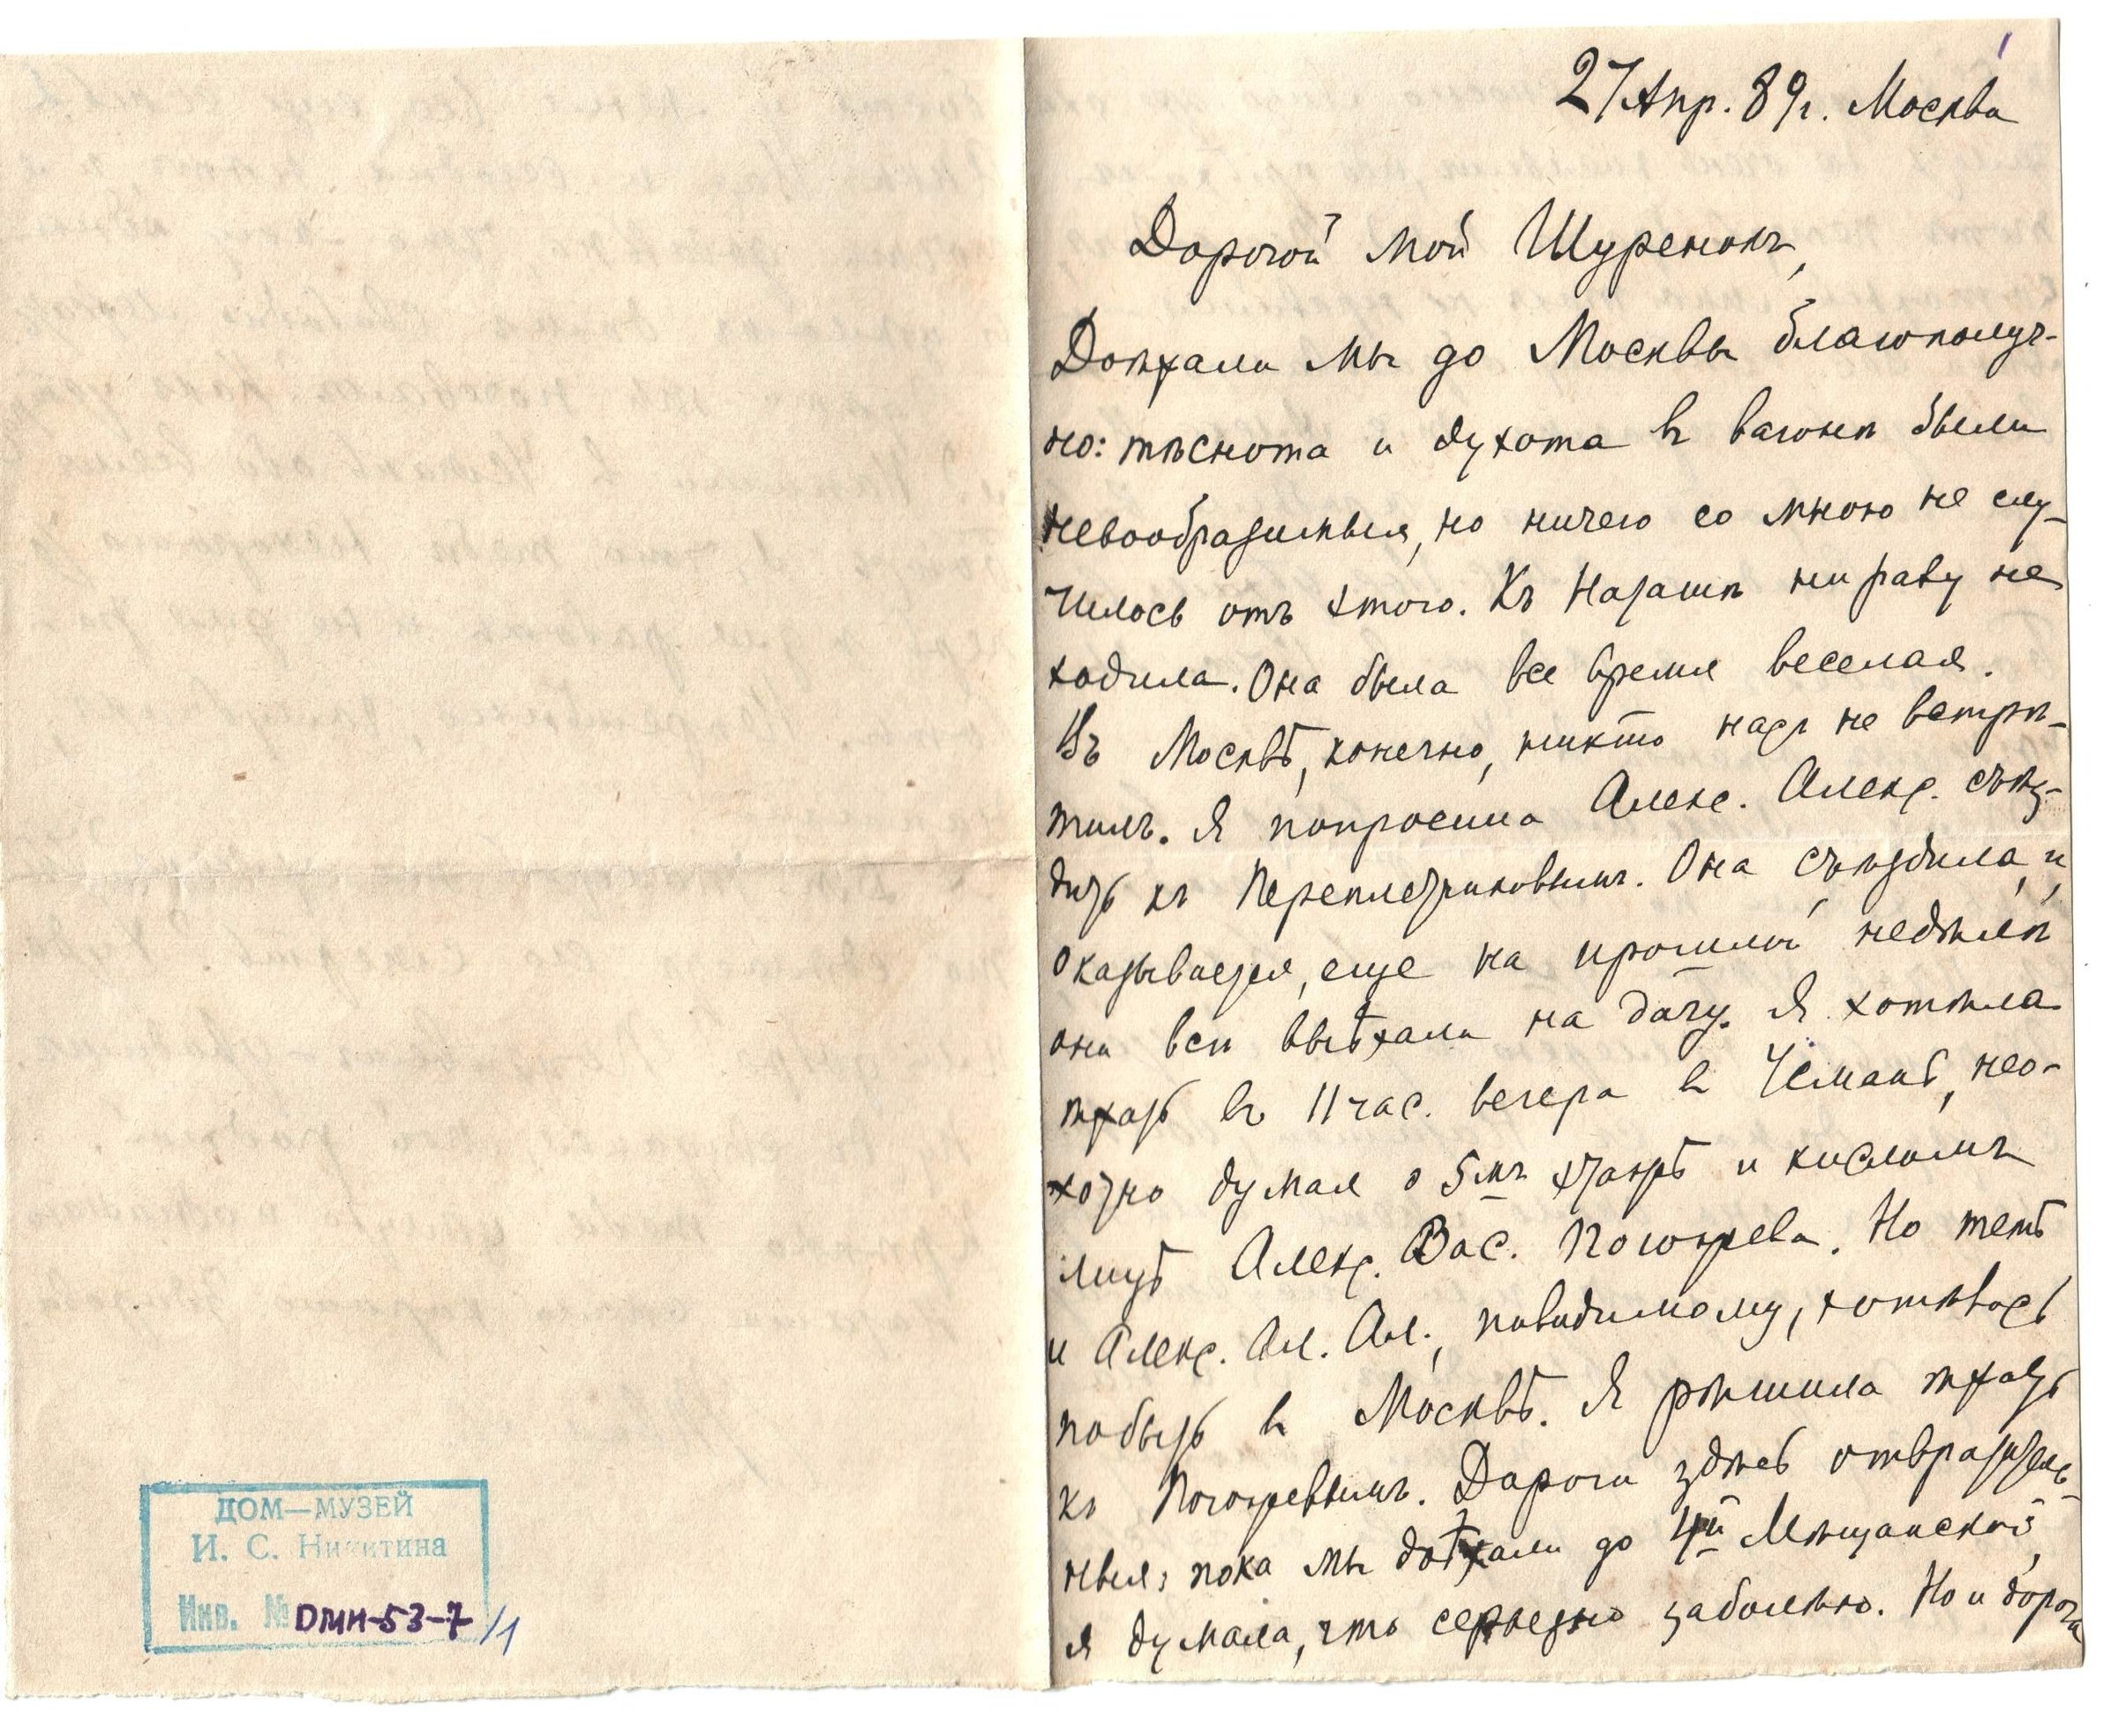 ДОМ—МУЗЕЙ
И. С. Никитина
Инв. № ДМН-53-7/1
27 Апр. 89г. Москва
Дорогой мой Шуренокъ,
Доѣхали мы до Москвы благополуч-
но: тѣснота и духота въ вагонѣ были
невообразимыя, но ничего со мною не слу-
чилось отъ этого. Къ Наташѣ ни разу не
ходила. Она была все время веселая.
Въ Москвѣ, конечно, никто насъ не встрѣ-
тилъ. Я попросила Алекс. Алекс. съѣз-
дить къ Переплетчиковымъ. Она съѣздила, и,
оказывается, еще на прошлой недѣлѣ
они всѣ выѣхали на дачу. Я хотѣла
ѣхать въ 11 час. вечера въ Усмань, нео-
хотно думая о 5мъ этажѣ и кисломъ
лицѣ Алекс. Вас. Погожева. Но тетѣ
и Алекс. Ал. Ал., повидимому, хотѣлось
побыть въ Москвѣ. Я рѣшила ѣхать
къ Погожевымъ. Дороги здѣсь отвратитель-
ныя; пока мы доѣхали до 4й Мѣщанской,
я думала, что серьезно заболѣю. Но и дорога